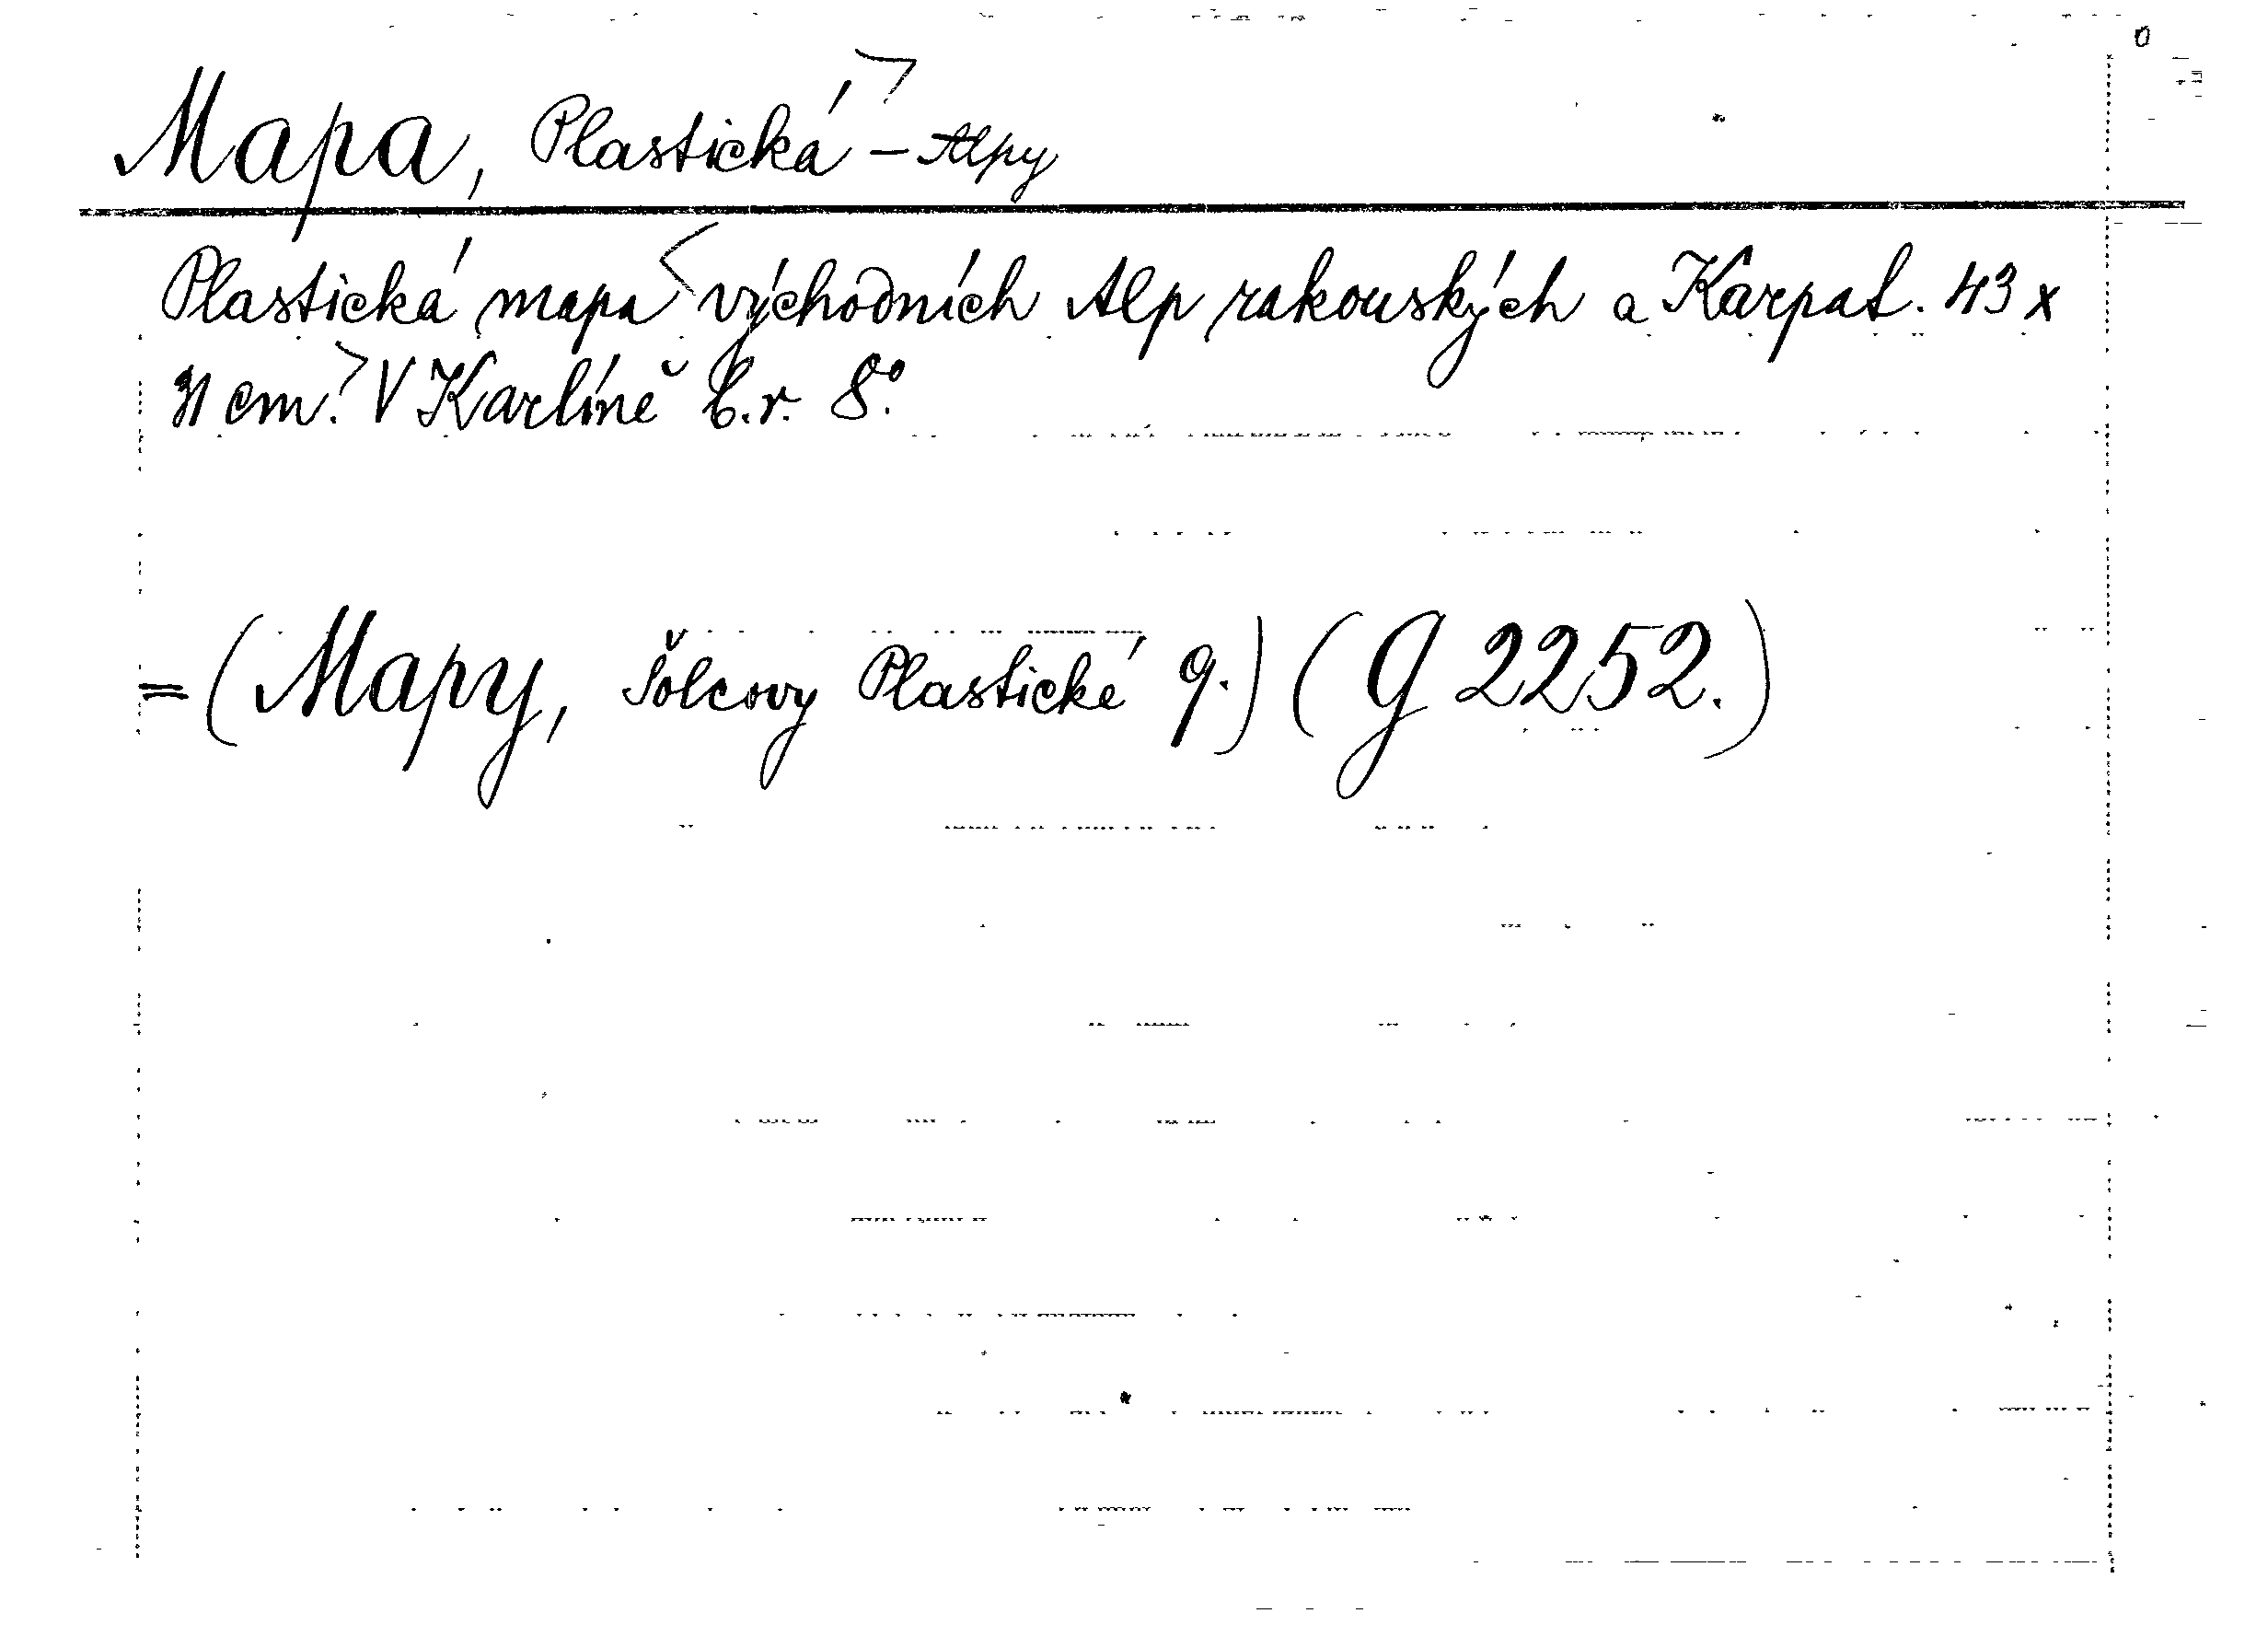 Mapa, Plastická – Alpy
Plastická mapa východních Alp rakouských a Karpat. 43 x
31 cm. V Karlíně B.r. 8°.
= (Mapy, Šolcovy Plastické 9.) (G 2252.)